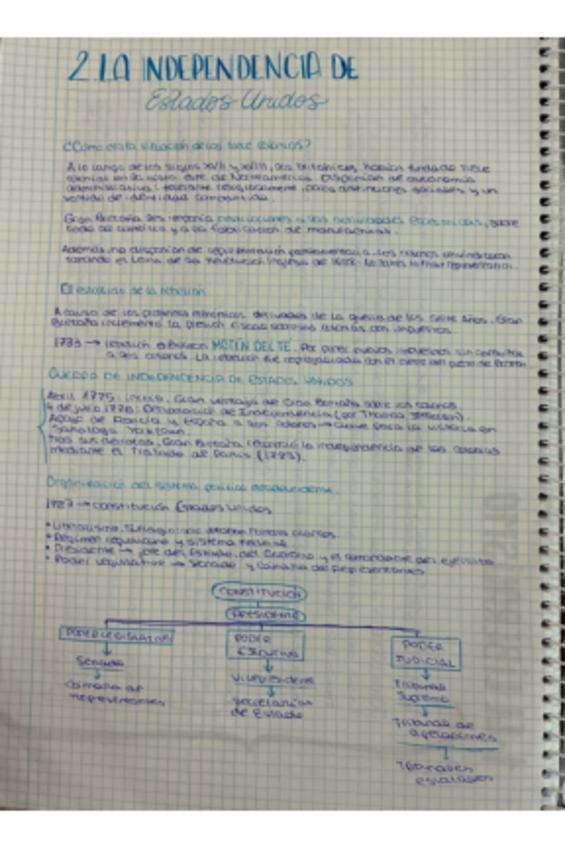 2. LA INDEPENDENCIA DE
Estados Unidos
¿Cómo era la situación de las trece colonias?
A lo largo de los siglos XVII y XVIII, los británicos habían fundado trece
colonias en la costa este de Norteamérica. Disponían de autonomía
administrativa, tolerante religiosamente, pocas distinciones sociales y un
sentido de identidad compartida.
Gran Bretaña les imponía restricciones a las actividades económicas, sobre
todo al comercio y a la fabricación de manufacturas.
Además, no disponían de representación parlamentaria. Los colonos
tomando el Lema de la Revolución Inglesa de
El estallido de la rebelión
A causa de los problemas económicos derivados de la guerra de los Siete Años, Gran
Bretaña incrementó la presión fiscal sobre las colonias con impuestos.
1773 → rebelión en Boston MOTÍN DEL TÉ. Por poner nuevos impuestos sin consultar
a los colonos. La rebelión fue con el cierre del puerto de Boston.
GUERRA DE INDEPENDENCIA DE ESTADOS UNIDOS
Abril 1775: Inicio. Gran ventaja de Gran Bretaña sobre los colonos
4 de julio 1776: Declaración de Independencia (por Thomas Jefferson).
Apoyo de Francia y España a los colonos → clave para la victoria en
Saratoga, Yorktown
Tras sus derrotas, Gran Bretaña reconoció la independencia de las colonias
mediante el Tratado de París (1783).
Organización del sistema político estadounidense.
1787 → Constitución Estados Unidos
• Liberalismo. Sufragio
• Régimen republicano y sistema federal
• Presidente → jefe del Estado, del Gobierno y el comandante del ejército
• Poder legislativo → Senado y Cámara de Representantes.
CONSTITUCIÓN
PRESIDENTE
PODER LEGISLATIVO PODER EJECUTIVO PODER JUDICIAL
Senado Vicepresidente Tribunal Supremo
Cámara de representantes Secretarios de Estado Tribunal de apelaciones
Tribunales estatales